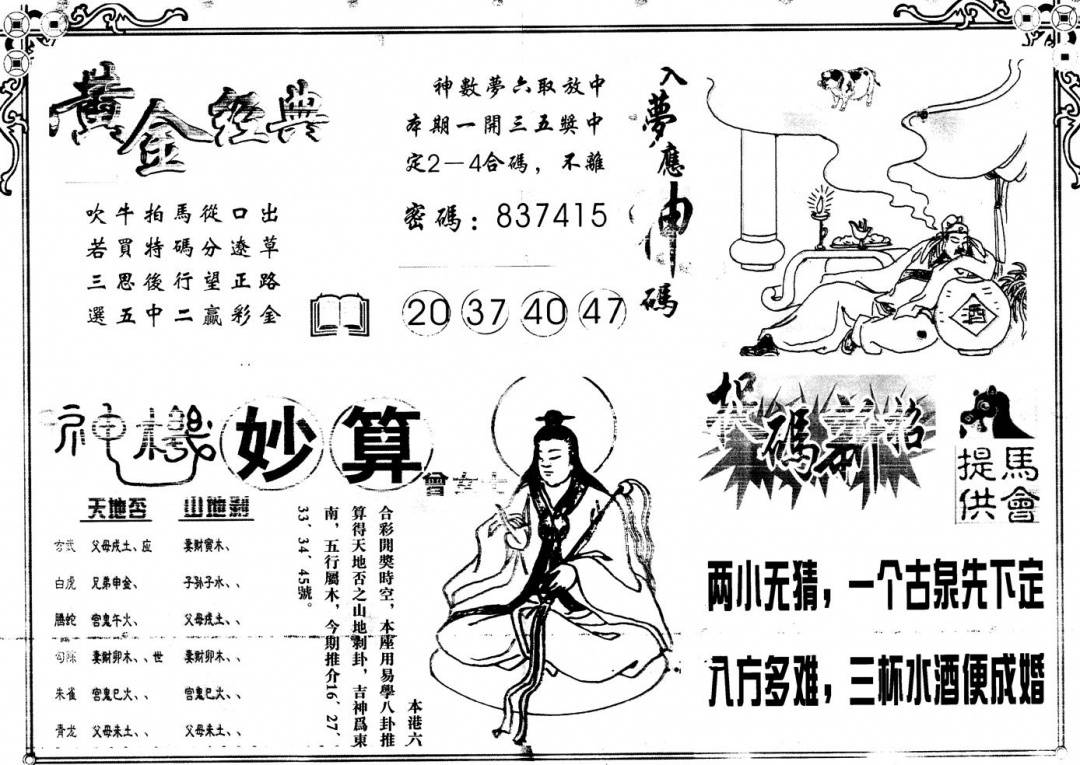 黃金經典
吹牛拍馬從口出
若買特碼分遼草
三思後行望正路
選五中二贏彩金
神數夢六取放中
本期一開三五獎中
定2—4合碼，不離
密碼：837415
20 37 40 47
入夢應神碼
酒
神機妙算
曾女士
天地否 山地剝
玄武 父母戌土、应 妻財寅木、
白虎 兄弟申金、 子孙子水、、
騰蛇 官鬼午火、 父母戌土、、
勾陈 妻財卯木、、世 妻財卯木、、
朱雀 官鬼巳火、、 官鬼巳火、、
青龙 父母未土、、 父母未土、、
本港六
合彩開獎時空，本座用易學八卦推
算得天地否之山地剝卦，吉神爲東
南，五行屬木，今期推介16、27、
33、34、45號。
捉碼新招
馬會
提供
两小无猜，一个古泉先下定
八方多难，三杯水酒便成婚